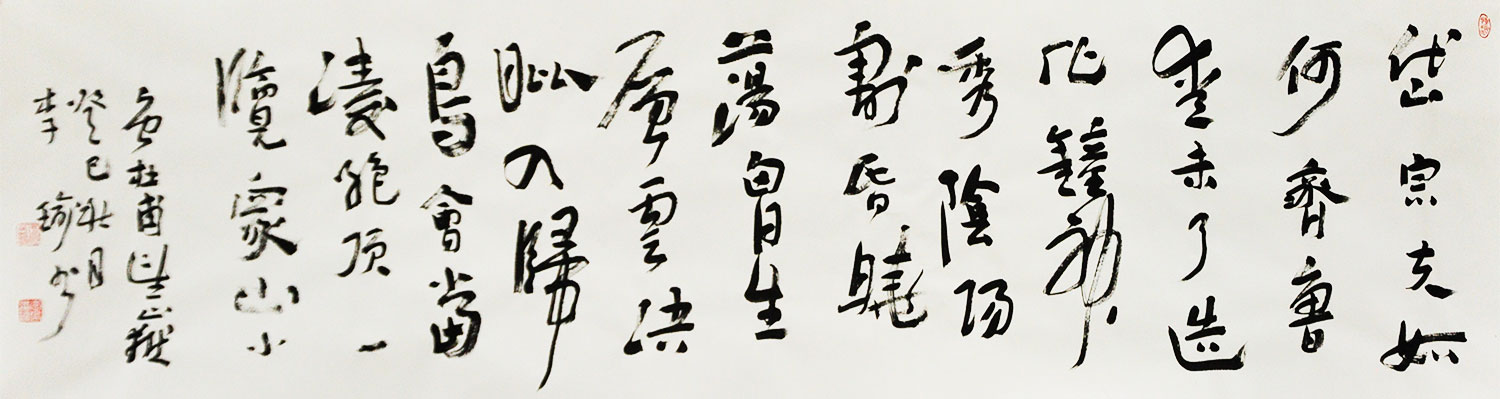 岱宗夫如
何齊魯
青未了造
化鐘神
秀陰陽
割昏曉
蕩胷生
層雲決
眦入歸
鳥會當
凌絕頂一
覽眾山小
杜甫望嶽
癸巳月
李瑜书